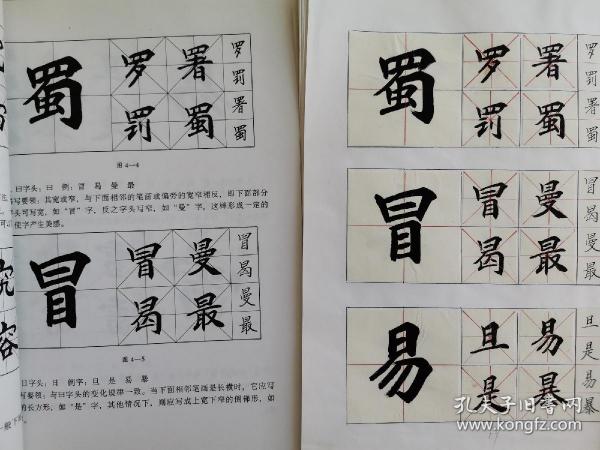 蜀
罗 署
罚 蜀
罗
罚
署
蜀
图 4—4
曰字头：曰 例：冒 曷 曼 最
写要领：其宽或窄，与下面相邻的笔画或偏旁的宽窄相反，即下面部分
头可写宽，如“冒”字，反之字头写窄，如“曼”字，这样形成一定的
使字产生美感。
究
容
冒
冒 曼
曷 最
冒
曷
曼
最
图 4—5
日字头：日 例字：旦 是 易 暴
写要领：与曰字头的变化规律一致。当下面相邻笔画是长横时，它应写
的长方形，如“是”字，其他情况下，则应写成上宽下窄的倒梯形，如
一般下
蜀
罗 署
罚 蜀
罗
罚
署
蜀
冒
冒 曼
曷 最
冒
曷
曼
最
易
旦 易
是 暴
旦
是
易
暴
孔夫子旧书网
www.kongfz.com